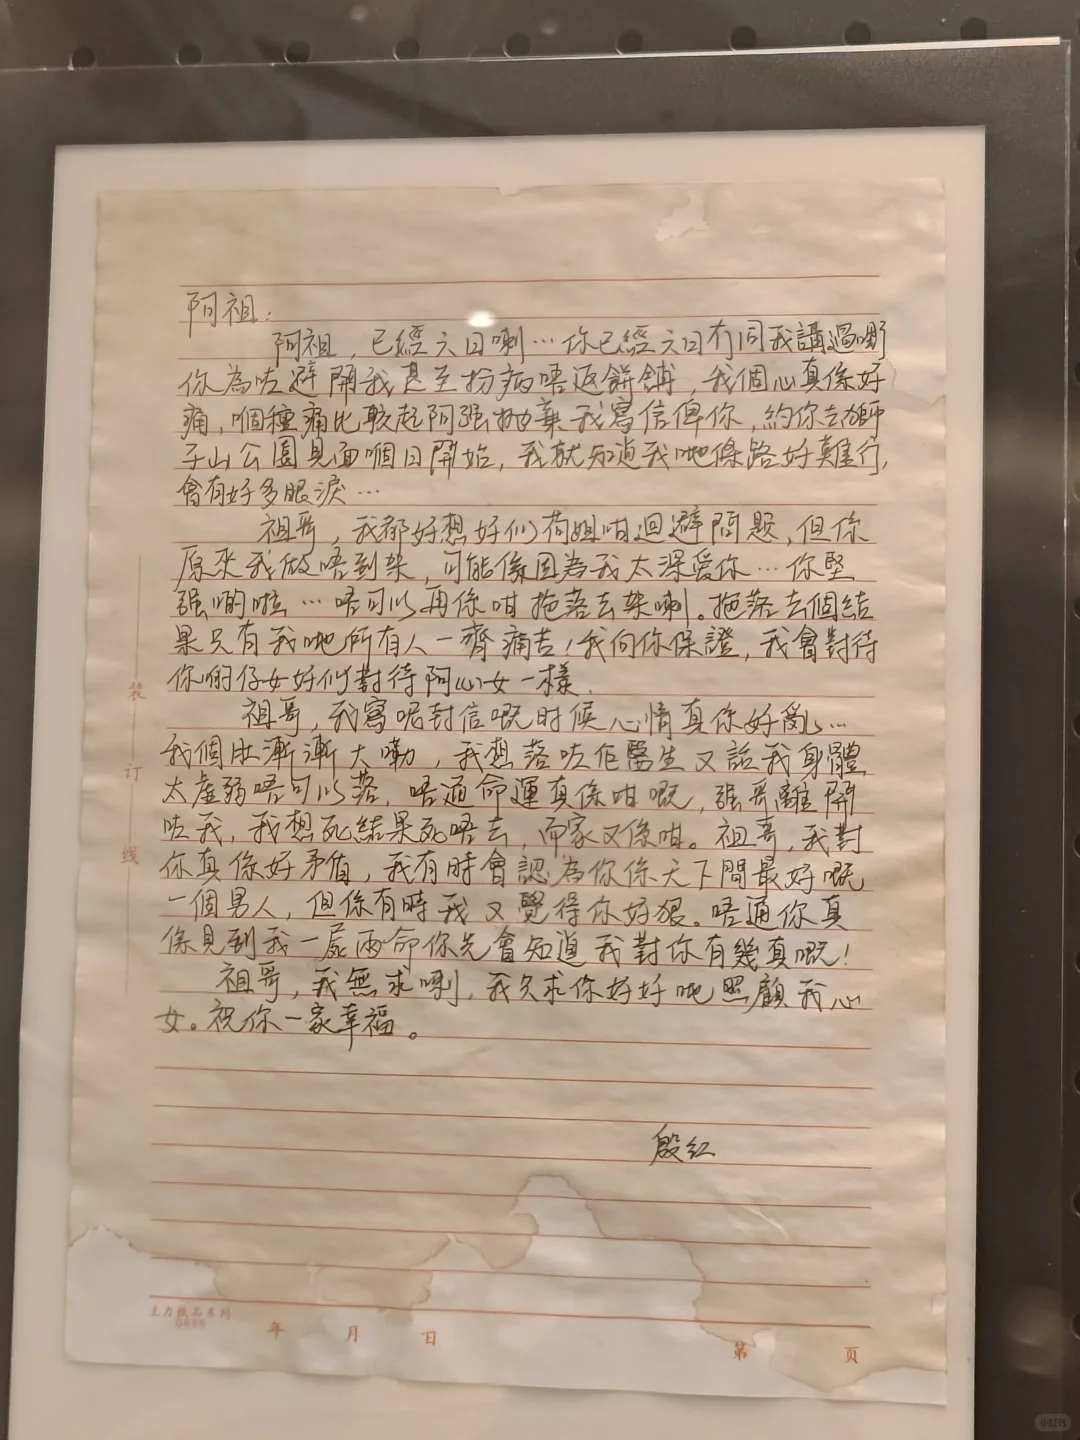 阿祖：
阿祖，已經六日喇…你已經六日冇同我講過嘢
你為咗避開我甚至扮病唔返餅舖，我個心真係好
痛，嗰種痛比較起阿強拋棄我寫信俾你，約你去獅
子山公園見面嗰日開始，我就知道我哋條路好難行，
會有好多眼淚…
祖哥，我都好想好似荷姐咁迴避問題，但係
原來我做唔到㗎，可能係因為我太深愛你…你堅
強啲啦…唔可以再係咁拖落去㗎喇。拖落去個結
果只有我哋所有人一齊痛苦！我向你保證，我會對待
你啲仔女好似對待阿心女一樣.
祖哥，我寫呢封信嘅时候心情真係好亂…
我個肚漸漸大嘞，我想落咗佢醫生又話我身體
太虛弱唔可以落，唔通命運真係咁嘅，強哥離開
咗我，我想死結果死唔去，而家又係咁。祖哥，我對
你真係好矛盾，我有時會認為你係天下間最好嘅
一個男人，但係有時我又覺得你好狠。唔通你真
係見到我一屍兩命你先會知道我對你有幾真嘅！
祖哥，我無求喇，我只求你好好哋照顧我心
女。祝你一家幸福。
殷红
装
订
线
主力纸品系列
0666
年 月 日 第 页
小红书